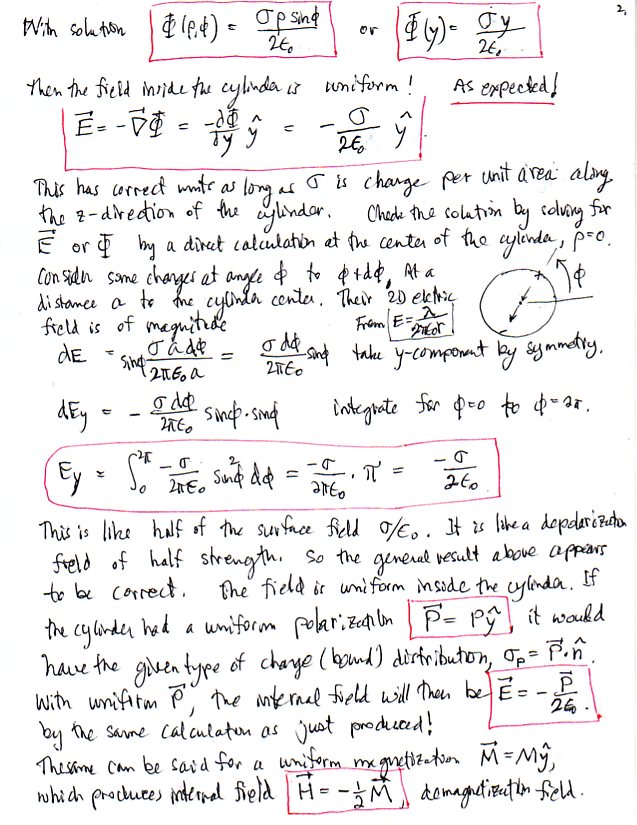 2,
With solution Φ(ρ,φ) = σρ sinφ / 2ε₀ or Φ(y) = σy / 2ε₀
Then the field inside the cylinder is uniform! As expected!
E⃗ = -∇⃗Φ = -∂Φ/∂y ŷ = - σ/2ε₀ ŷ
This has correct units as long as σ is charge per unit area along
the z-direction of the cylinder. Check the solution by solving for
E⃗ or Φ by a direct calculation at the center of the cylinder, ρ=0.
Consider some charges at angle φ to φ+dφ, At a
distance a to the cylinder center. Their 2D elctric
field is of magnitude From E = λ/2πε₀r
φ
dE = sinφ σ a dφ / 2πε₀ a = σ dφ / 2πε₀ sinφ take y-component by symmetry.
dEy = - σ dφ / 2πε₀ sinφ · sinφ integrate for φ=0 to φ=2π.
Ey = ∫₀^2π -σ/2πε₀ sin²φ dφ = -σ/2πε₀ · π = -σ/2ε₀
This is like half of the surface field σ/ε₀. It is like a depolarization
field of half strength. So the general result above appears
to be correct. The field is uniform inside the cylinder. If
the cylinder had a uniform polarization P⃗ = Pŷ, it would
have the given type of charge (bound) distribution, σp = P⃗·n̂.
With uniform P⃗, the internal field will then be E⃗ = - P⃗/2ε₀.
by the same calculation as just produced!
The same can be said for a uniform magnetization M⃗ = Mŷ,
which produces internal field H⃗ = -½ M⃗, demagnetization field.